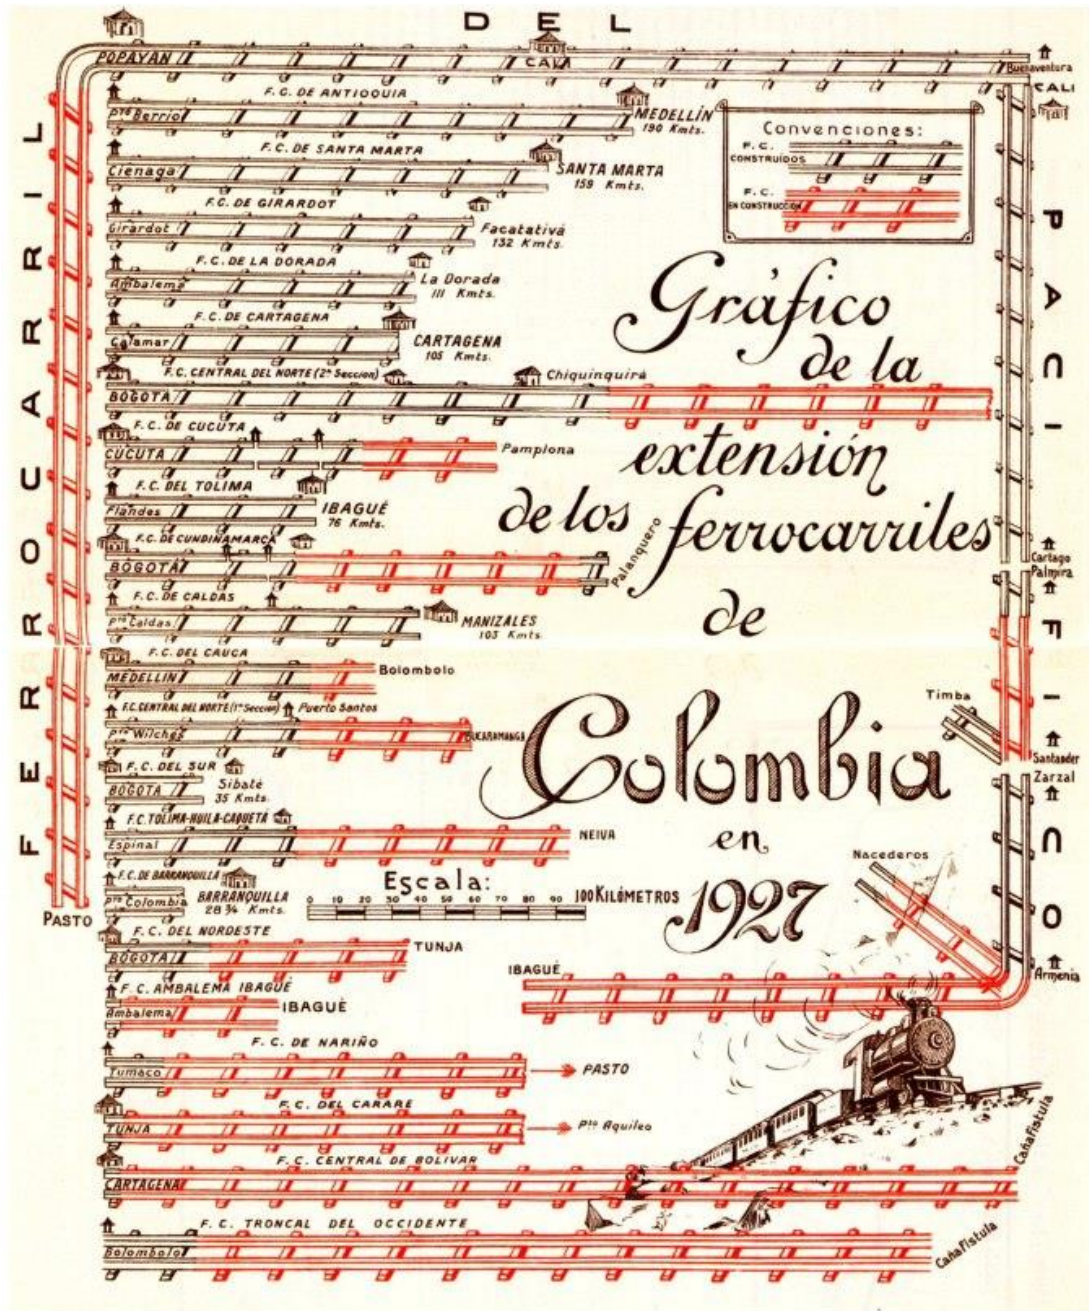 FERROCARRIL
DEL
PACIFICO
POPAYAN
CALI
Buenaventura
CALI
F.C. DE ANTIOQUIA
Pto Berrio
MEDELLÍN
190 Kmts.
F.C. DE SANTA MARTA
Ciénaga
SANTA MARTA
159 Kmts.
F.C. DE GIRARDOT
Girardot
Facatativá
132 Kmts.
F.C. DE LA DORADA
Ambalema
La Dorada
111 Kmts.
F.C. DE CARTAGENA
Calamar
CARTAGENA
105 Kmts.
F.C. CENTRAL DEL NORTE (2ª Sección)
BOGOTA
Chiquinquirá
F.C. DE CUCUTA
CÚCUTA
Pamplona
F.C. DEL TOLIMA
Flandes
IBAGUÉ
76 Kmts.
F.C. DE CUNDINAMARCA
BOGOTÁ
Palanquero
F.C. DE CALDAS
Pto Caldas
MANIZALES
103 Kmts.
F.C. DEL CAUCA
MEDELLIN
Bolombolo
F.C. CENTRAL DEL NORTE (1ª Sección)
Puerto Santos
Pto Wilches
BUCARAMANGA
F.C. DEL SUR
BOGOTA
Sibaté
35 Kmts.
F.C. TOLIMA-HUILA-CAQUETÁ
Espinal
NEIVA
F.C. DE BARRANQUILLA
Pto Colombia
BARRANQUILLA
28 ¾ Kmts.
F.C. DEL NORDESTE
BOGOTA
TUNJA
F.C. AMBALEMA IBAGUÉ
Ambalema
IBAGUÉ
F.C. DE NARIÑO
Tumaco
PASTO
F.C. DEL CARARE
TUNJA
Pto Aquileo
F.C. CENTRAL DE BOLIVAR
CARTAGENA
Cañafístula
F.C. TRONCAL DEL OCCIDENTE
Bolombolo
Cañafístula
PASTO
Convenciones:
F.C.
CONSTRUÍDOS
F.C.
EN CONSTRUCCIÓN
Gráfico
de la
extensión
de los ferrocarriles
de
Colombia
en
1927
Escala:
0 10 20 30 40 50 60 70 80 90 100 KILÓMETROS
Cartago
Palmira
Timba
Santander
Zarzal
Nacederos
Armenia
IBAGUÉ